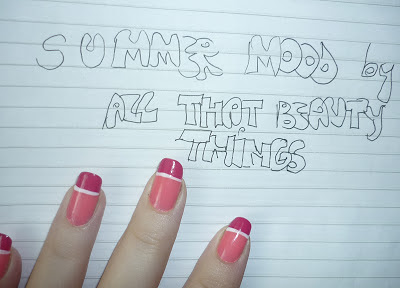 SUMMER MOOD by
ALL THAT BEAUTY
THINGS